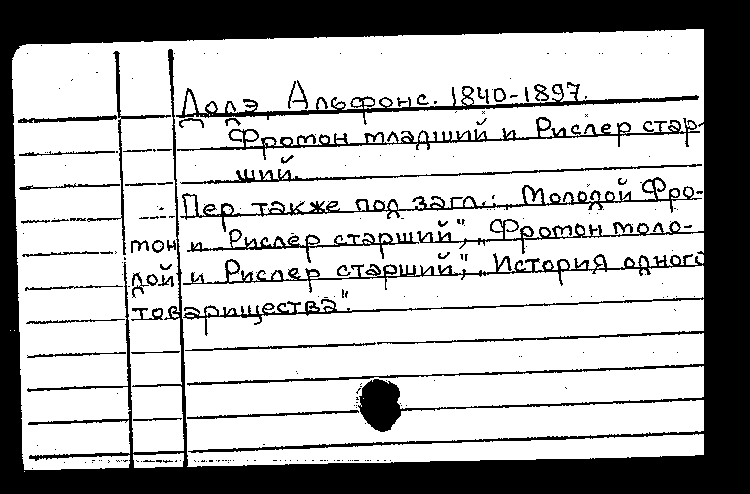 Додэ, Альфонс. 1840-1897.
Фромон младший и Рислер стар-
ший.
Пер. также под загл.: „Молодой Фро-
мон и Рислер старший", „Фромон моло-
дой и Рислер старший", „История одного
товарищества".